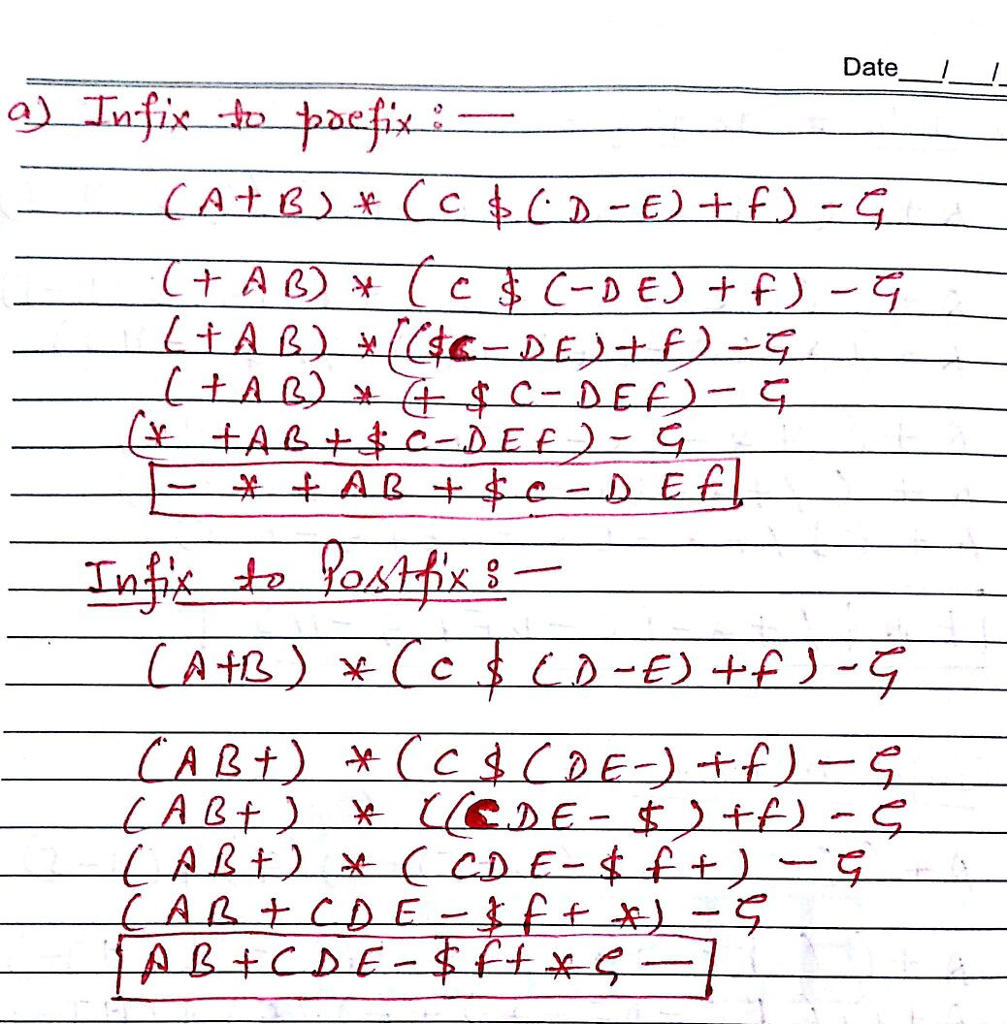 Date__/__/_
a) Infix to prefix :-
(A+B) * (C $ (D-E) + f) - G
(+AB) * (C $ (-DE) + f) - G
(+AB) * (($C-DE) + f) - G
(+AB) * (+ $ C-DEf) - G
(* +AB + $ C-DEf) - G
- * + AB + $ C - D E f
Infix to Postfix :-
(A+B) * (C $ (D-E) + f) - G
(AB+) * (C $ (DE-) + f) - G
(AB+) * ((CDE-$) + f) - G
(AB+) * (CDE-$ f+) - G
(AB + CDE - $ f + *) - G
AB + CDE - $ f + * G -